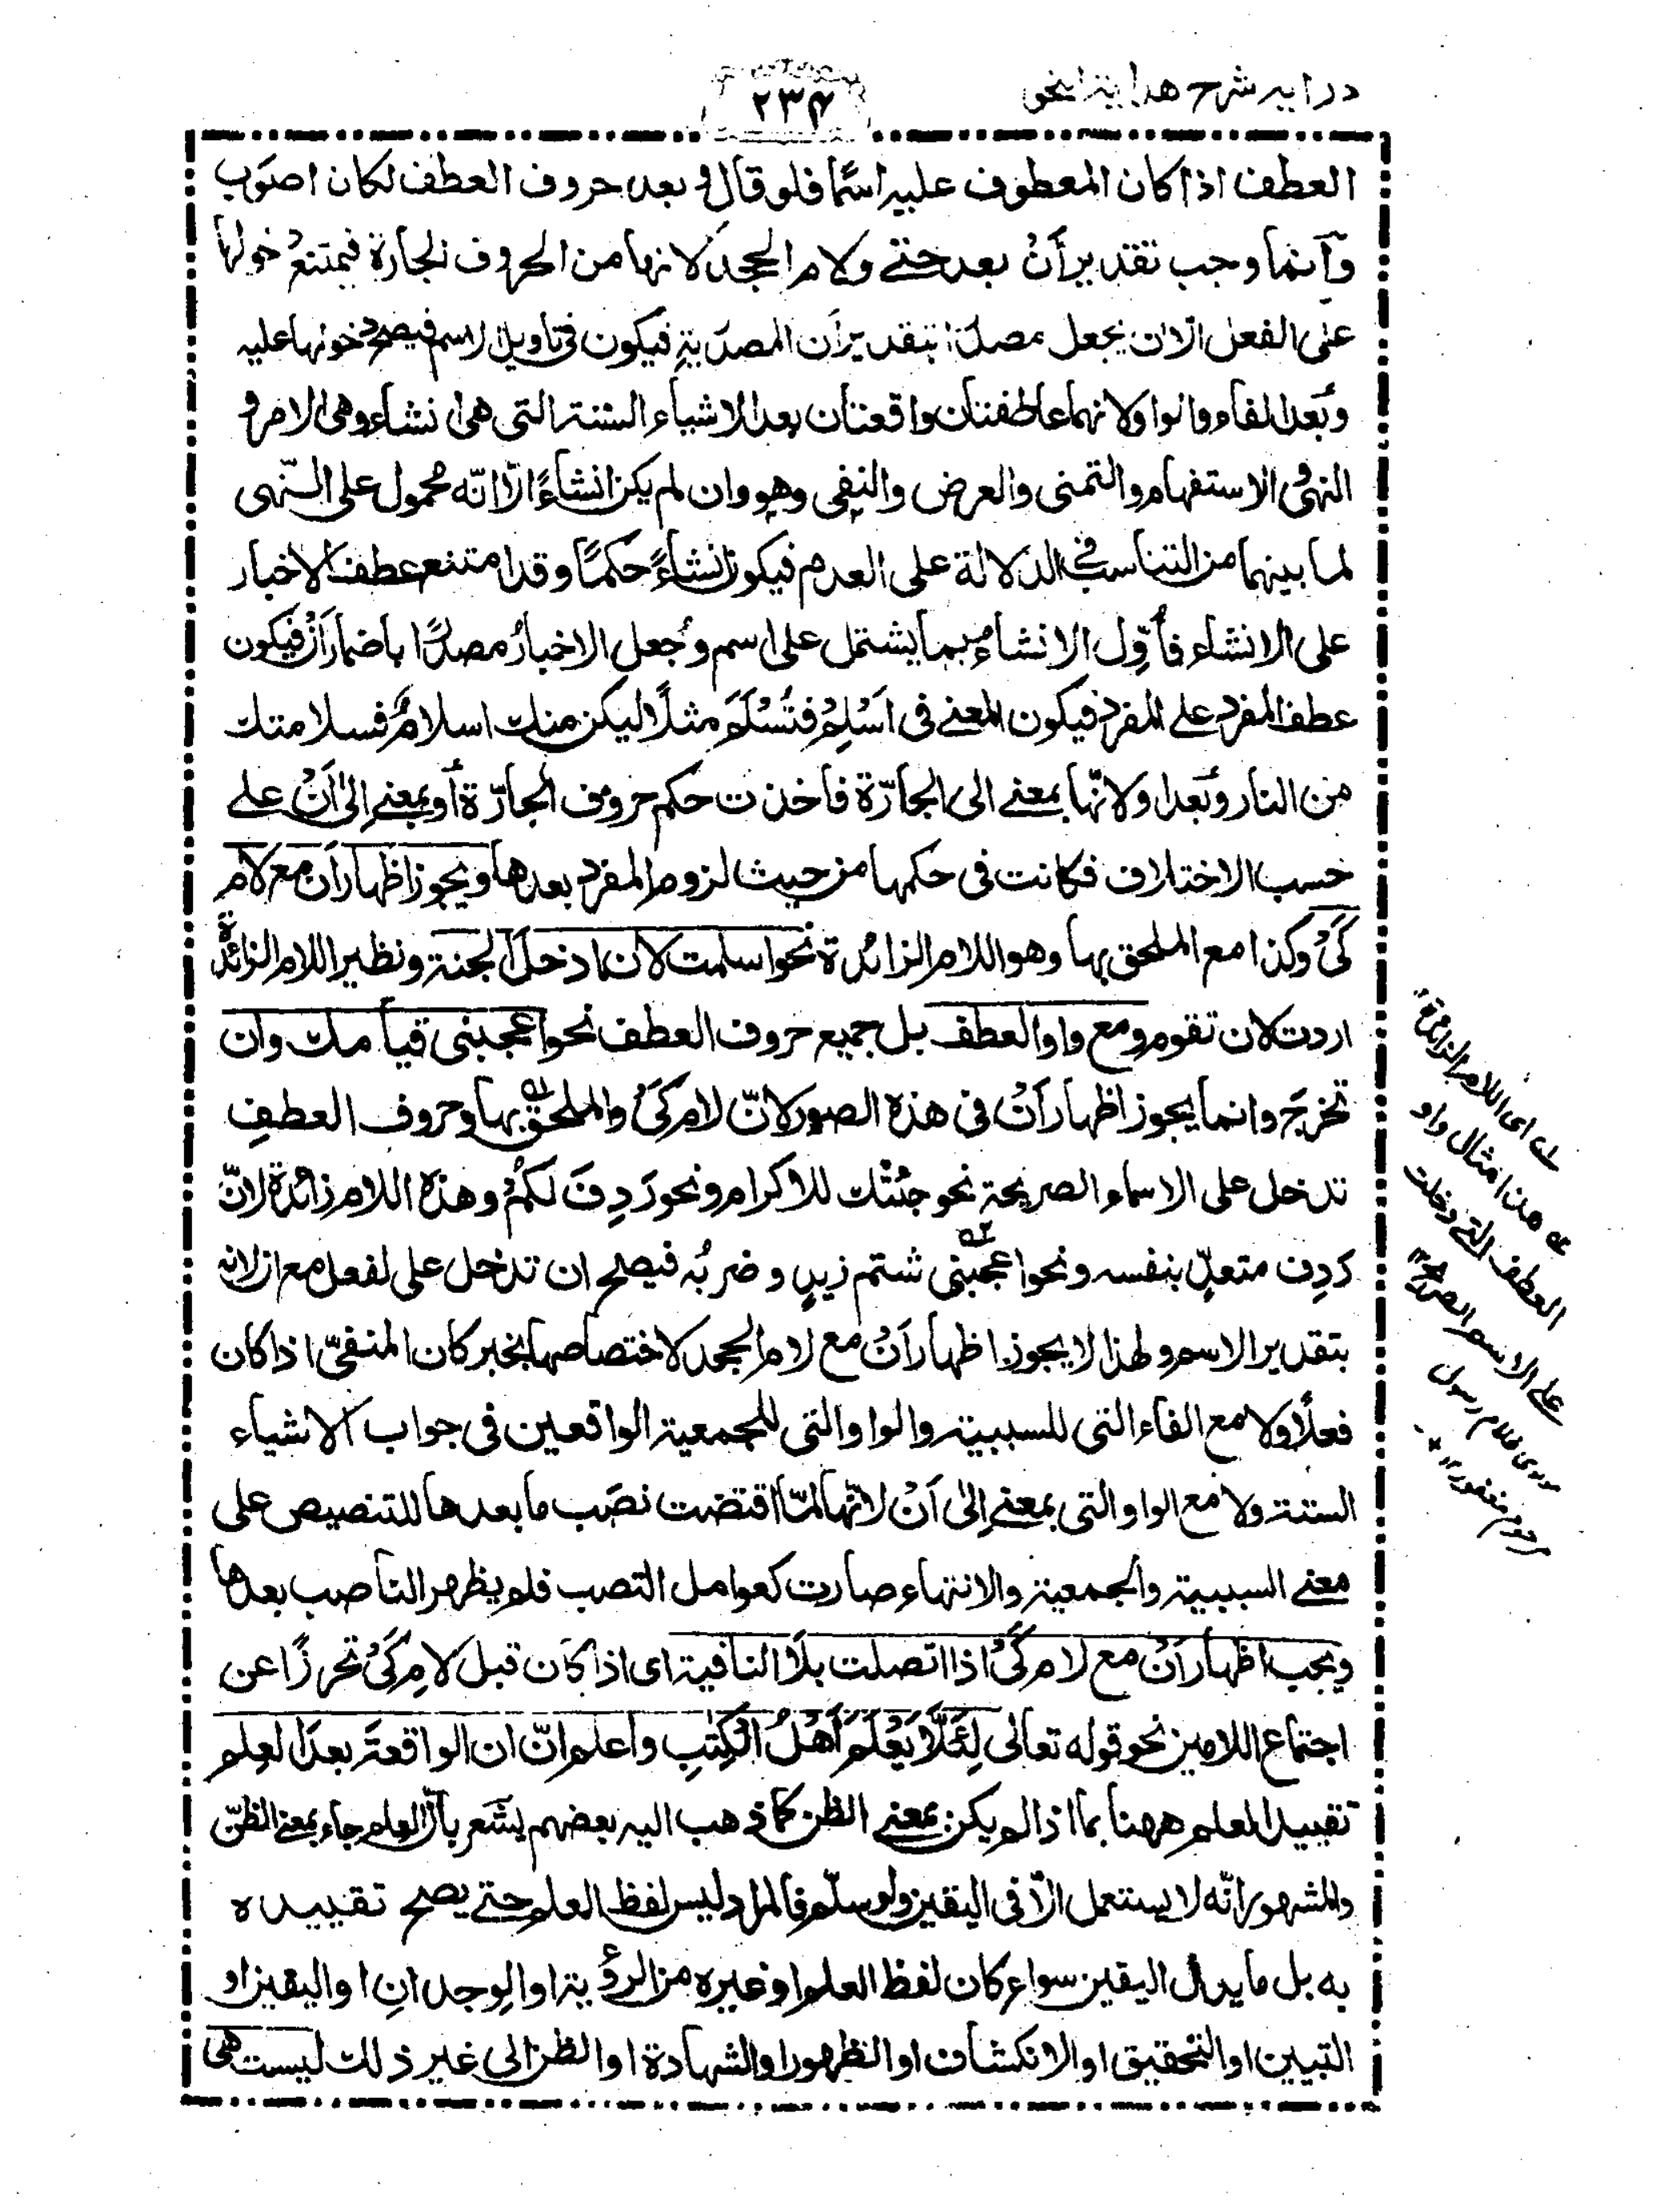 درایه شرح هدایة النحو
۲۳۴
العطف اذا كان المعطوف عليه اسمًا فلو قال و بعد حروف العطف لكان اصوَب
وَآنما وجب تقدير أَنْ بعد حتے ولام الجحد لانها من الحروف الجارة فيمتنع دخولها
على الفعل الا ان يجعل مصدرا بتقدير اَن المصدرية فيكون فى تاويل الاسم فيصح دخولها عليه
وبَعد الفاء والواو لانهما عاطفتان واقعتان بعد الاشياء الستة التى هى انشاء وهى الامر و
النهى و الاستفهام والتمنى والعرض والنفى وهو وان لم يكن انشاءً الّا انّه محمول على النّهى
لما بينهما من التناسب فى الدلالة على العدم فيكون انشاءً حكمًا وقد امتنع عطف الاخبار
على الانشاء فأُوِّل الانشاء بما يشتمل على اسم وجُعل الاخبارُ مصدرًا باضمار اَنْ فيكون
عطف المفرد على المفرد فيكون المعنے فى اَسْلِمْ فَتَسْلَمَ مثلًا ليكن منك اسلامٌ فسلامتك
من النار وبَعد او لانّها بمعنے الى الجارّة فاخذت حكم حروف الجارّة أو بمعنے اِلىٰ اَنْ علے
حسب الاختلاف فكانت فى حكمها من حيث لزوم المفرد بعدها ويجوز اظهار اَن مع لام
كَىْ وكذا مع الملحق بها وهو اللام الزائدة نحو اسلمت لان ادخل الجنة ونظير اللام الزائدة
اردت لان تقوم ومع واو العطف بل جميع حروف العطف نحو اعجبنى قيامك وان
تخرجَ وانما يجوز اظهار اَنْ فى هذه الصور لانّ لام كَىْ والملحق بها وحروف العطفِ
تدخل على الاسماء الصريحة نحو جئتك للاكرام ونحو رَدِفَ لَكُمْ وهذه اللام زائدة لانّ
رَدِف متعدٍّ بنفسه ونحو اعجبنى شتم زيدٍ وضربُه فيصلح ان تدخل على لفعل مع ان لانه
بتقدير الاسم ولهذا لا يجوز اظهار اَنْ مع لام الجحد لاختصاصها بخبر كان المنفىّ اذا كان
فعلًا ولا مع الفاء التى للسببية والواو التى للجمعية الواقعين فى جواب الاشياء
الستة ولا مع الواو التى بمعنے اِلىٰ اَنْ لانّها لمّا اقتضت نصَب ما بعدها للتنصيص على
معنے السببية والجمعية والانتهاء صارت كعوامل النصب فلم يظهر الناصب بعدها
ويجب اظهار اَنْ مع لام كَىْ اذا اتصلت بلا النافية اى اذا كان قبل لامِ كَىْ تحرزًا عن
اجتماع اللامين نحو قوله تعالى لِئَلَّا يَعْلَمَ اَهْلُ الْكِتٰبِ واعلم انّ ان الواقعةَ بعدَ العِلم
تقييد العلم ههنا بما اذا لم يكن بمعنے الظن كما ذهب اليه بعضهم يشعر بانّ العلم جاء بمعنے الظنّ
والمشهور انّه لا يستعمل الّا فى اليقين ولو سلّم فالمراد ليس لفظ العلم حتے يصح تقييده
به بل ما يدل اليقين سواء كان لفظ العلم او غيره من الرؤية او الوجدانِ او اليقين او
التبيين او التحقيق او الانكشاف او الظهور او الشهادة او الظن الى غير ذلك ليست هى
اى اللام الزائدة
هذا مثال واو
العطف التى دخلت
على الاسم الصريح